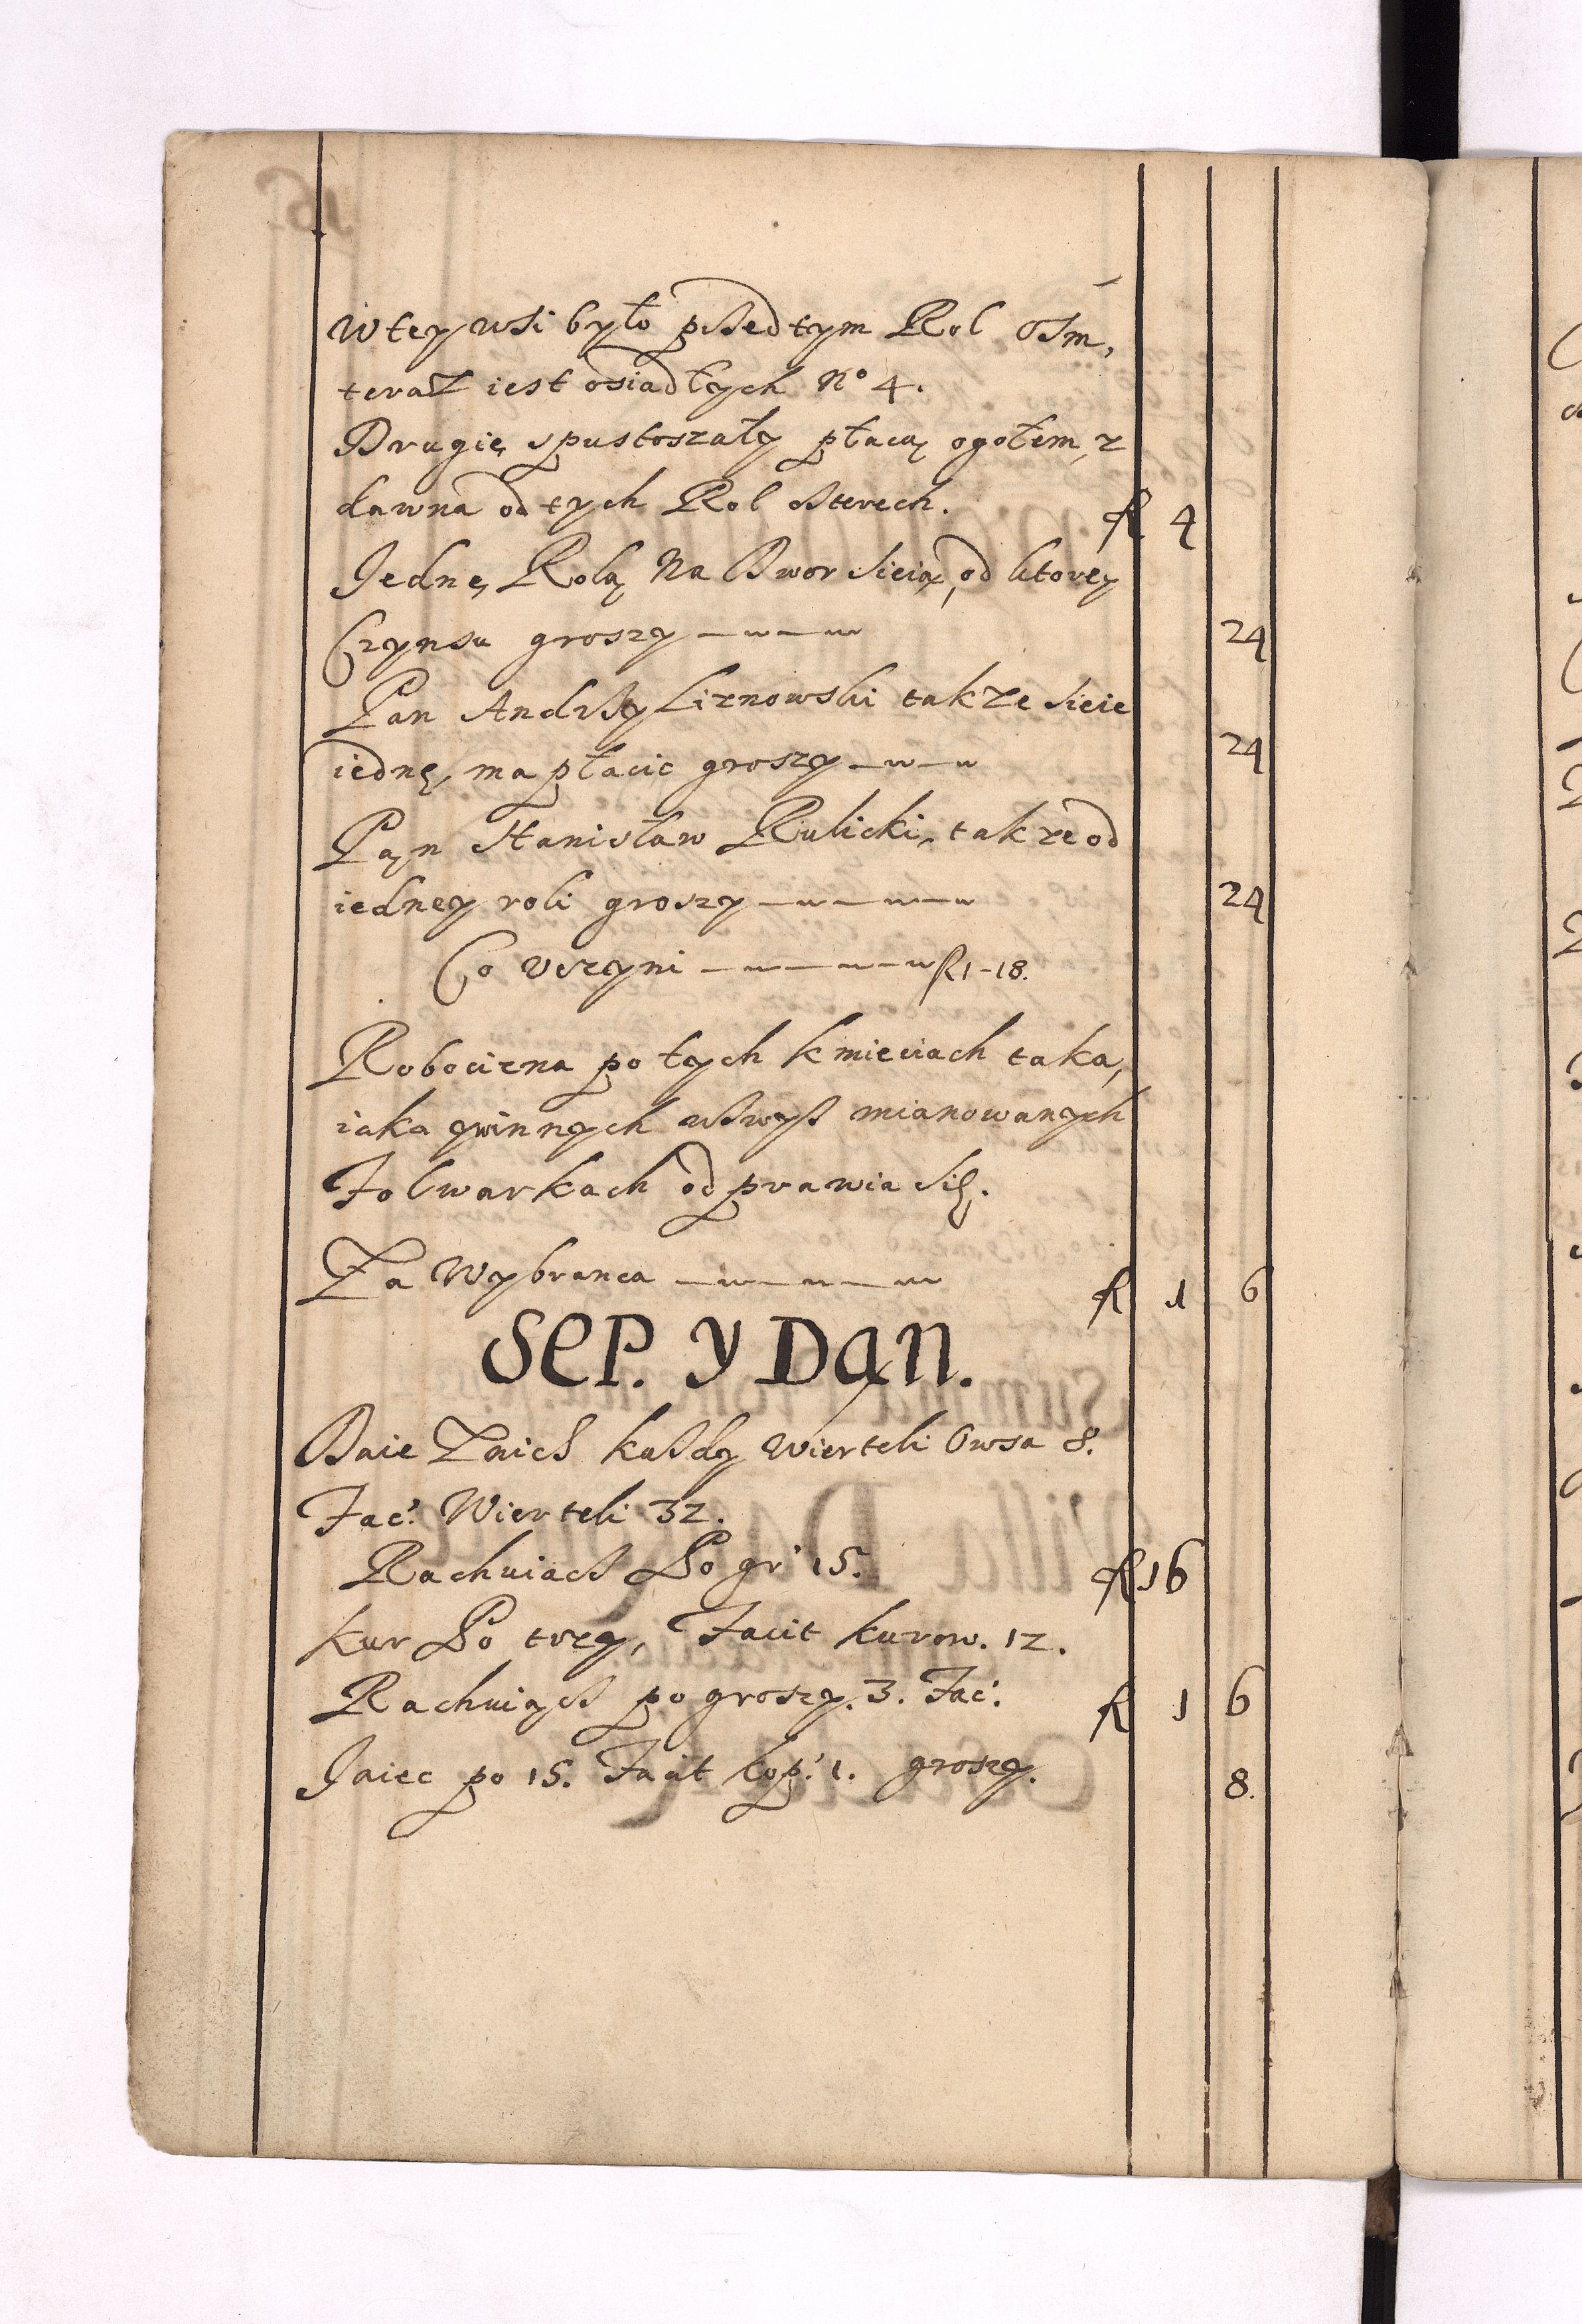 W tey wsi było pßed tym Rol osm,
teraz iest osiadłych No 4.
Drugie spustoszały płacą ogołem, z
dawna od tych Rol cßterech. R 4
Jednę Rolą Na Dwor sieią, od ktorey
Czynsu groszy 24
Pan Andrßey Lirnowski takze sieie
iednę, ma płacic groszy 24
Pąn Stanisław Rulicki, takze od
iedney roli groszy 24
Co Uczyni R 1-18.
Robocizna po tych kmieciach taka,
iaka ywinnych wßwyß mianowanych
Folwarkach odprawia się.
Za Wybranca R 1 6
SEP. Y DAN.
Daie Znich kaßdy Wierteli Owsa 8.
Fac: Wierteli 32.
Rachuiącß Po gr: 15. R 16
Kur Po trzy, Facit kurow. 12.
Rachuiącß po groszy. 3. Fac: R 1 6
Jaiec po 15. Facit kop: 1. groszy. 8.